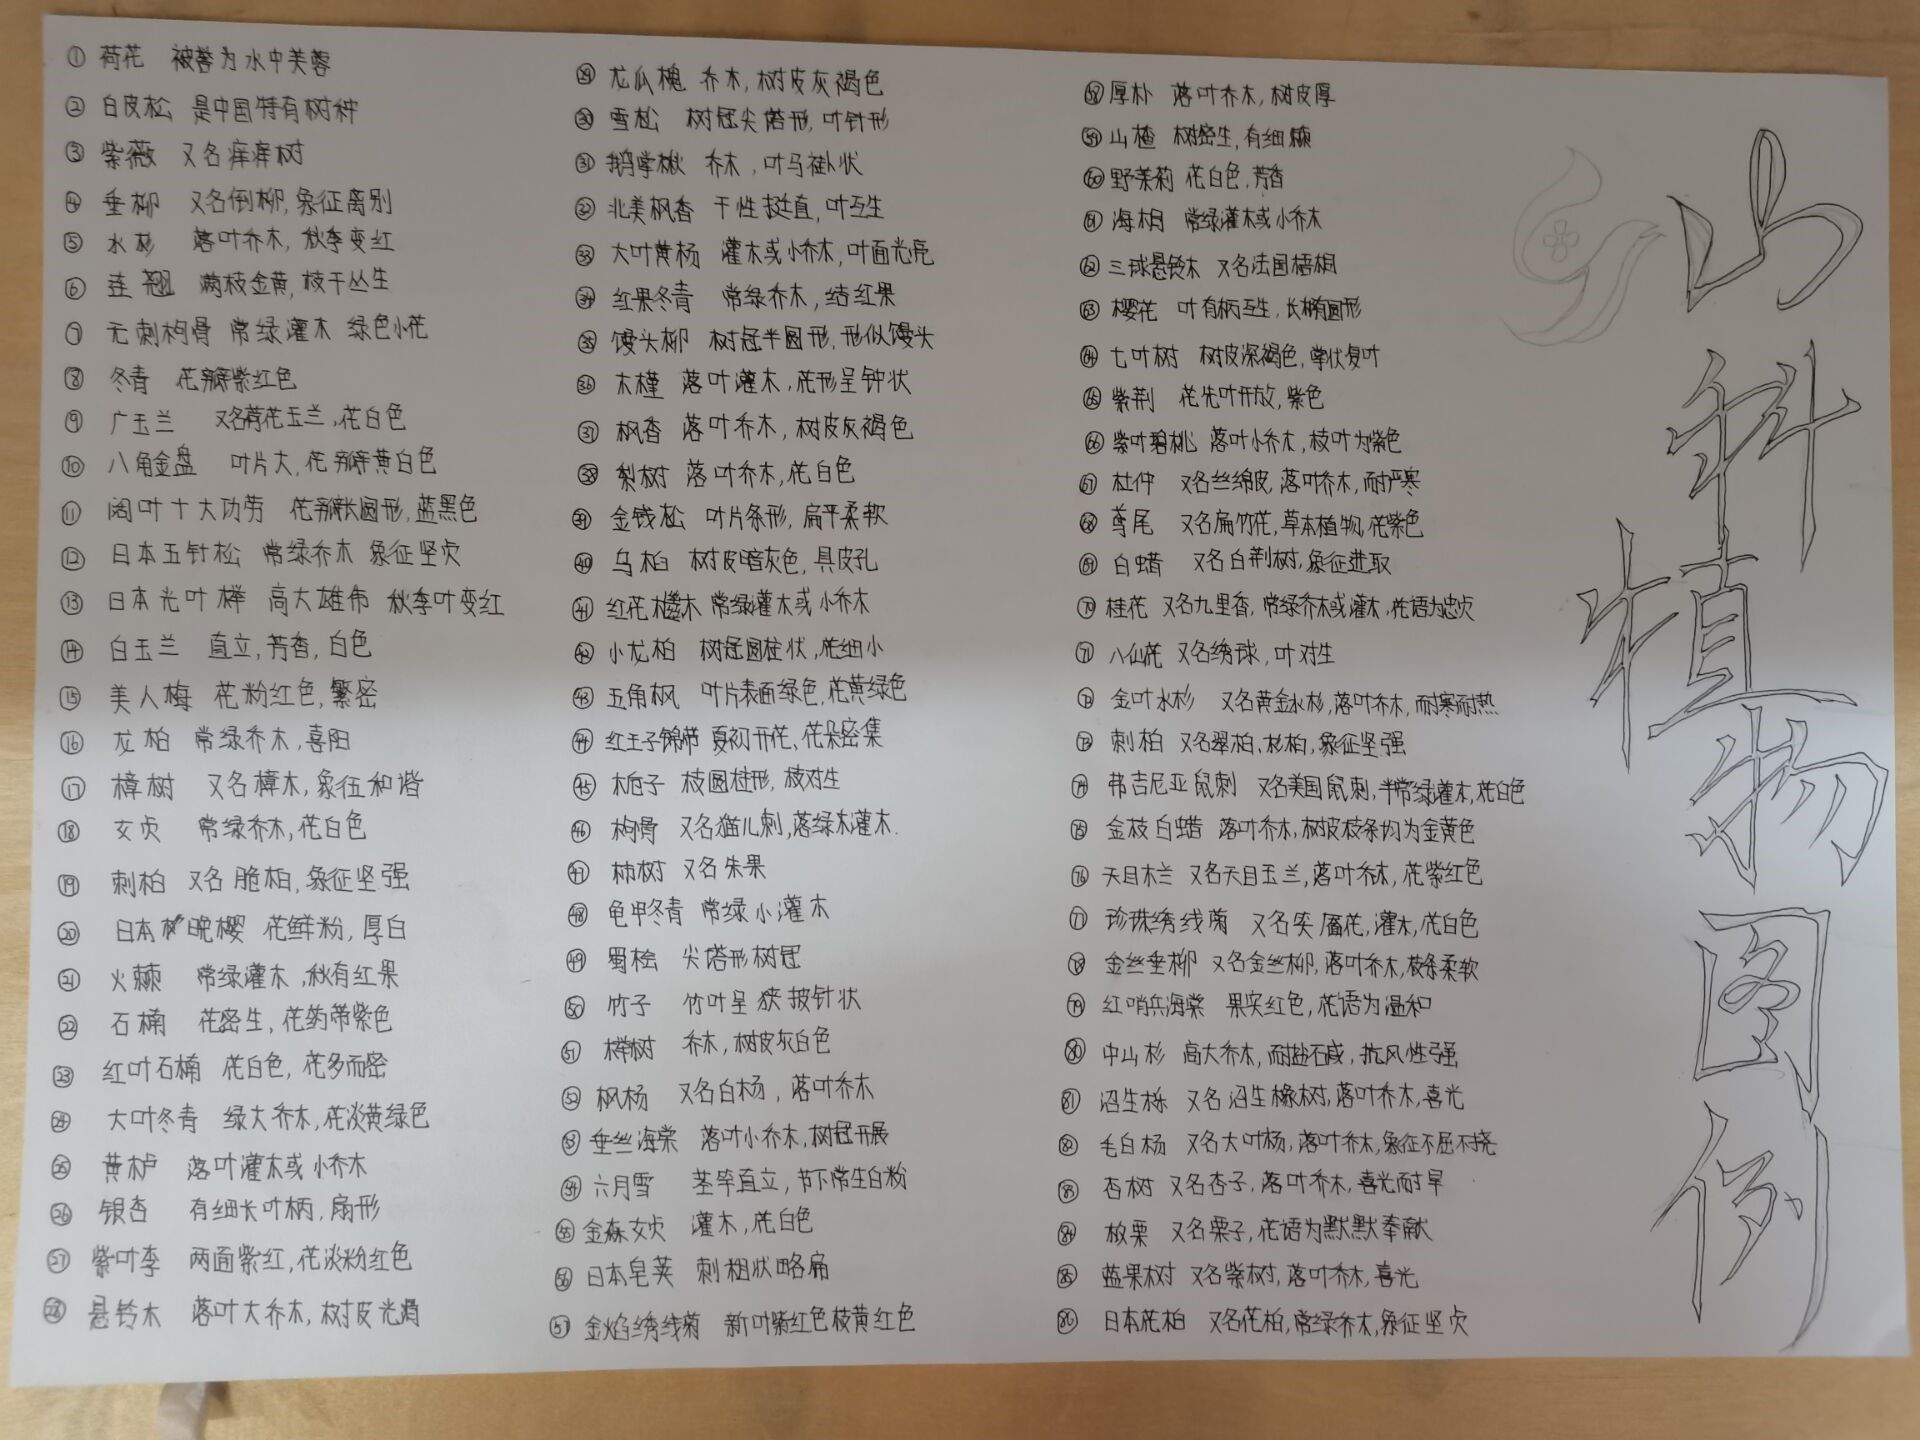 ① 荷花 被誉为水中芙蓉
② 白皮松 是中国特有树种
③ 紫薇 又名痒痒树
④ 垂柳 又名倒柳,象征离别
⑤ 水杉 落叶乔木,秋季变红
⑥ 连翘 满枝金黄,枝干丛生
⑦ 无刺枸骨 常绿灌木 绿色小花
⑧ 冬青 花瓣紫红色
⑨ 广玉兰 又名荷花玉兰,花白色
⑩ 八角金盘 叶片大,花瓣黄白色
⑪ 阔叶十大功劳 花瓣长圆形,蓝黑色
⑫ 日本五针松 常绿乔木 象征坚贞
⑬ 日本光叶榉 高大雄伟 秋季叶变红
⑭ 白玉兰 直立,芳香,白色
⑮ 美人梅 花粉红色,繁密
⑯ 龙柏 常绿乔木,喜阳
⑰ 樟树 又名樟木,象征和谐
⑱ 女贞 常绿乔木,花白色
⑲ 刺柏 又名脆柏,象征坚强
⑳ 日本晚樱 花鲜粉,厚白
㉑ 火棘 常绿灌木,秋有红果
㉒ 石楠 花密生,花药带紫色
㉓ 红叶石楠 花白色,花多而密
㉔ 大叶冬青 绿大乔木,花淡黄绿色
㉕ 黄栌 落叶灌木或小乔木
㉖ 银杏 有细长叶柄,扇形
㉗ 紫叶李 两面紫红,花淡粉红色
㉘ 悬铃木 落叶大乔木,树皮光滑
㉙ 龙爪槐 乔木,树皮灰褐色
㉚ 雪松 树冠尖塔形,叶针形
㉛ 鹅掌楸 乔木,叶马褂状
㉜ 北美枫香 干性挺直,叶互生
㉝ 大叶黄杨 灌木或小乔木,叶面光亮
㉞ 红果冬青 常绿乔木,结红果
㉟ 馒头柳 树冠半圆形,形似馒头
㊱ 木槿 落叶灌木,花形呈钟状
㊲ 枫香 落叶乔木,树皮灰褐色
㊳ 梨树 落叶乔木,花白色
㊴ 金钱松 叶片条形,扁平柔软
㊵ 乌桕 树皮暗灰色,具皮孔
㊶ 红花檵木 常绿灌木或小乔木
㊷ 小龙柏 树冠圆柱状,花细小
㊸ 五角枫 叶片表面绿色,花黄绿色
㊹ 红王子锦带 夏初开花、花朵密集
㊺ 栀子 枝圆柱形,枝对生
㊻ 枸骨 又名猫儿刺,落绿木灌木.
㊼ 柿树 又名朱果
㊽ 龟甲冬青 常绿小灌木
㊾ 蜀桧 尖塔形树冠
㊿ 竹子 竹叶呈狭披针状
51 榉树 乔木,树皮灰白色
52 枫杨 又名白杨,落叶乔木
53 垂丝海棠 落叶小乔木,树冠开展
54 六月雪 茎竿直立,节下常生白粉
55 金森女贞 灌木,花白色
56 日本皂荚 刺粗状略扁
57 金焰绣线菊 新叶紫红色枝黄红色
58 厚朴 落叶乔木,树皮厚
59 山楂 树密生,有细棘
60 野茉莉 花白色,芳香
61 海桐 常绿灌木或小乔木
62 三球悬铃木 又名法国梧桐
63 樱花 叶有柄互生,长椭圆形
64 七叶树 树皮深褐色,掌状复叶
65 紫荆 花先叶开放,紫色
66 紫叶碧桃 落叶小乔木,枝叶为紫色
67 杜仲 又名丝绵皮,落叶乔木,耐严寒
68 鸢尾 又名扁竹花,草本植物,花紫色
69 白蜡 又名白荆树,象征进取
70 桂花 又名九里香,常绿乔木或灌木,花语为忠贞
71 八仙花 又名绣球,叶对生
72 金叶水杉 又名黄金水杉,落叶乔木,耐寒耐热
73 刺柏 又名翠柏、杉柏,象征坚强
74 弗吉尼亚鼠刺 又名美国鼠刺,半常绿灌木,花白色
75 金枝白蜡 落叶乔木,树皮枝条均为金黄色
76 天目木兰 又名天目玉兰,落叶乔木,花紫红色
77 珍珠绣线菊 又名笑靥花,灌木,花白色
78 金丝垂柳 又名金丝柳,落叶乔木,枝条柔软
79 红哨兵海棠 果实红色,花语为温和
80 中山杉 高大乔木,耐盐碱,抗风性强
81 沼生栎 又名沼生橡树,落叶乔木,喜光
82 毛白杨 又名大叶杨,落叶乔木,象征不屈不挠
83 杏树 又名杏子,落叶乔木,喜光耐旱
84 板栗 又名栗子,花语为默默奉献
85 蓝果树 又名紫树,落叶乔木,喜光
86 日本花柏 又名花柏,常绿乔木,象征坚贞
山科植物图例